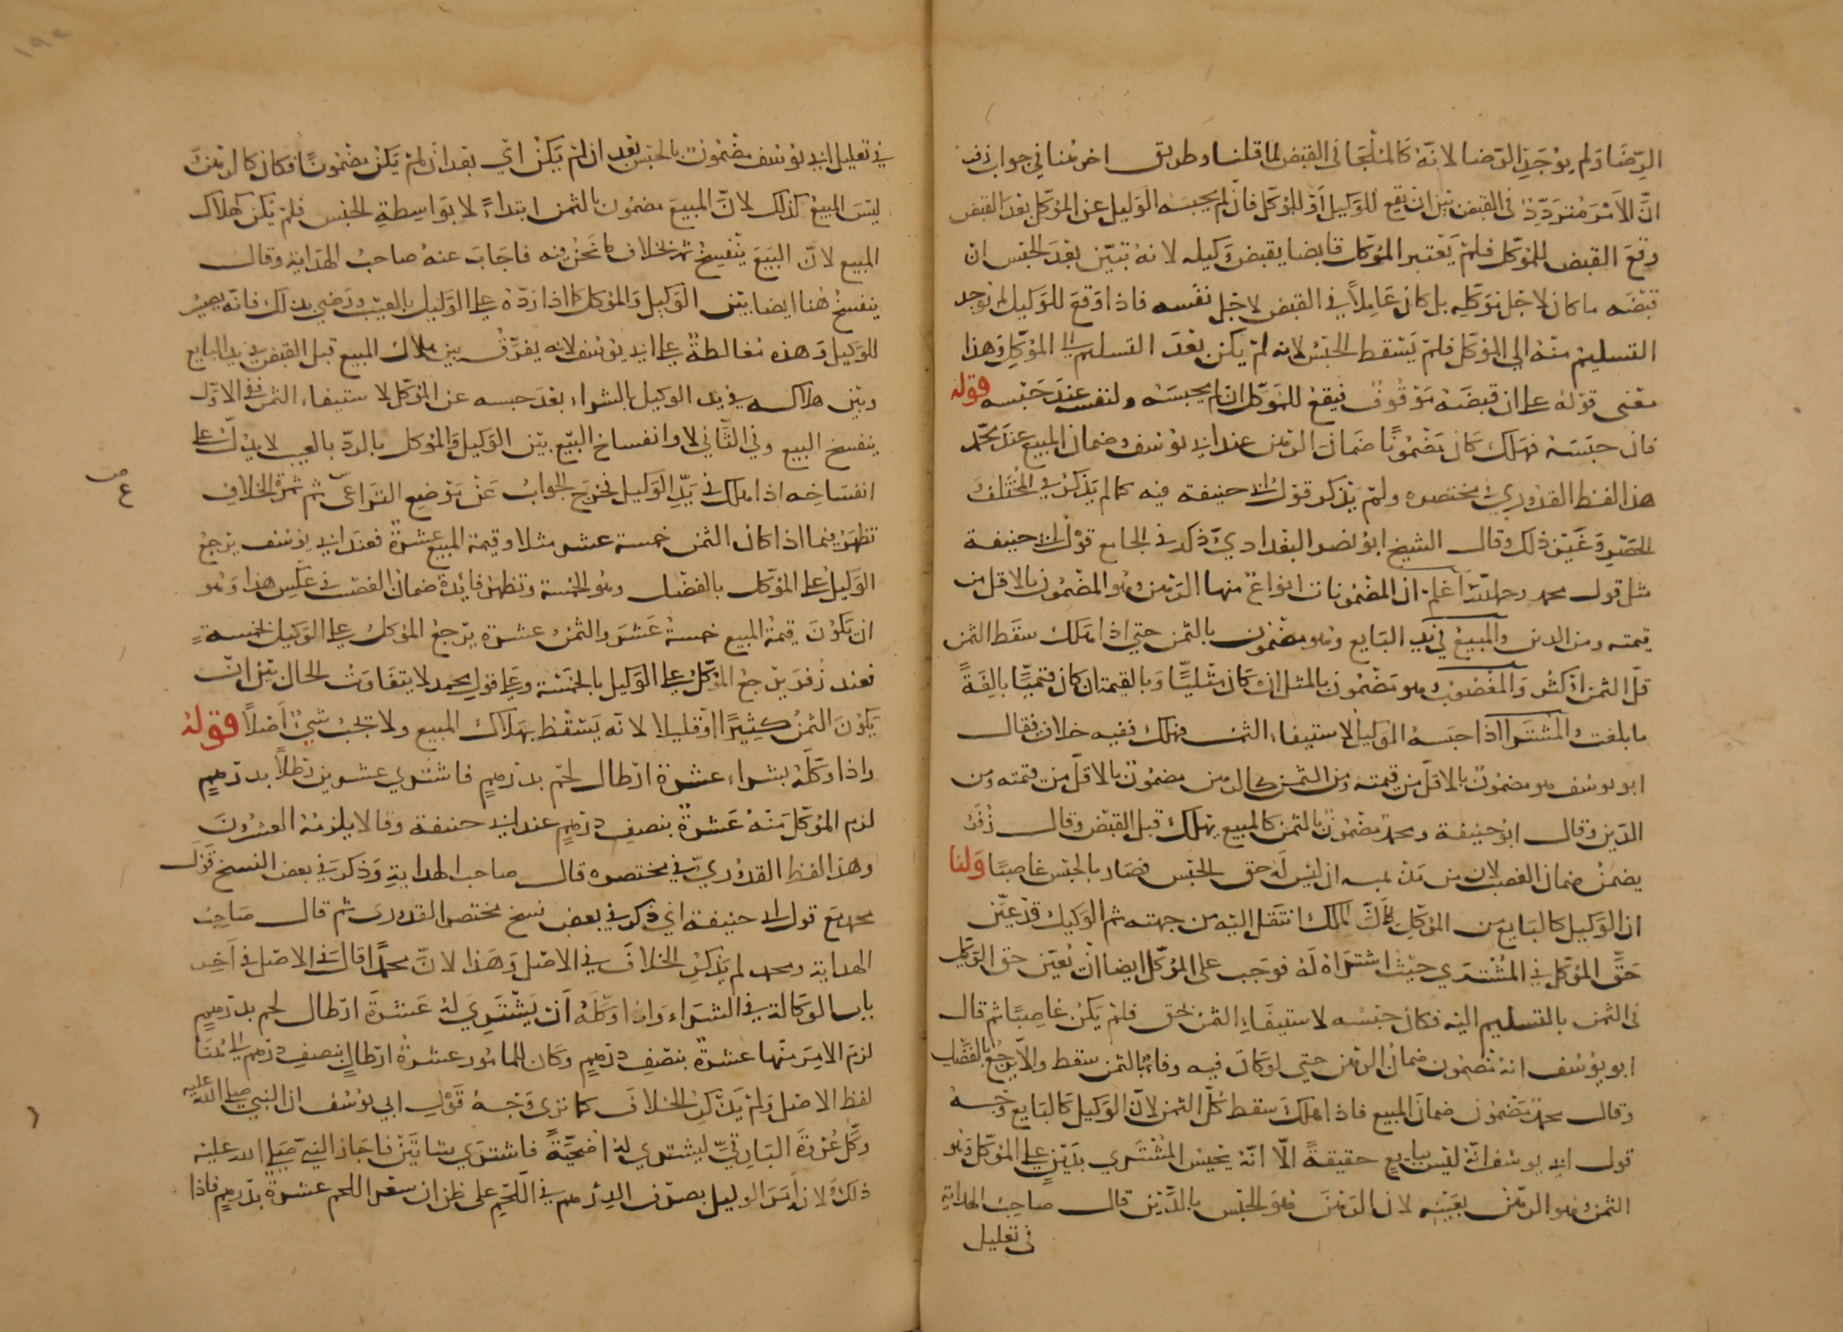 الرضا ولم يوجد الرضا لانه كالملجا في القبض لما قلنا وطريق اخر هنا في جواب زفر
ان الامر متردد في القبض بين ان يقع للوكيل او للموكل فان لم يحبسه الوكيل عن الموكل بعد القبض
وقع القبض للموكل فلم يعتبر الموكل قابضا بقبض وكيله لانه تبين بعد الحبس ان
قبضه ما كان لاجل توكله بل كان عاملا في القبض لاجل نفسه فاذا وقع للوكيل لم يوجد
التسليم منه الى الموكل فلم يسقط الحبس لانه لم يكن بعد التسليم الى الموكل وهذا
معنى قوله على ان قبضه موقوف فيقع للموكل ان لم يحبسه ولنفسه عند حبسه قوله
فان حبسه فهلك كان مضمونا ضمان الرهن عند ابي يوسف وضمان المبيع عند محمد
هذا لفظ القدوري في مختصره ولم يذكر قول ابي حنيفة فيه كما لم يذكر في المختلف
الحصر وغيره ذلك وقال الشيخ ابو نصر البغدادي ذكر في الجامع قول ابي حنيفة
مثل قول محمد رحمه الله اعلم ان المضمونات انواع منها الرهن وهو المضمون بالاقل من
قيمته ومن الدين والمبيع في يد البايع وهو مضمون بالثمن حتى اذا هلك سقط الثمن
قل الثمن او كثر والمغصوب وهو مضمون بالمثل ان كان مثليا وبالقيمة ان كان قيميا بالغة
ما بلغت والمشترا اذا حبسه الوكيل لاستيفاء الثمن فهلك ففيه خلاف فقال
ابو يوسف هو مضمون بالاقل من قيمته ومن الثمن كالرهن مضمون بالاقل من قيمته ومن
الدين وقال ابو حنيفة ومحمد مضمون بالثمن كالمبيع يهلك قبل القبض وقال زفر
يضمن ضمان الغصب لان من مذهبه ان ليس له حق الحبس فصار بالحبس غاصبا ولنا
ان الوكيل كالبايع من الموكل لان الملك انتقل اليه من جهته ثم الوكيل قد عين
حق الموكل في المشترى حيث اشتراه له فوجب على الموكل ايضا ان يعين حق الوكيل
في الثمن بالتسليم اليه فكان حبسه لاستيفاء الثمن بحق فلم يكن غاصبا ثم قال
ابو يوسف انه مضمون ضمان الرهن حتى لو كان فيه وفاء بالثمن سقط والا يرجع بالفضل
وقال محمد مضمون ضمان المبيع فاذا هلك سقط كل الثمن لان الوكيل كالبايع وجه
قول ابي يوسف انه ليس ببايع حقيقة الا انه يحبس المشترى بدين على الموكل وهو
الثمن وهو الرهن بعينه لان الرهن هو الحبس بالدين قال صاحب الهداية
في تعليل
في تعليل ابي يوسف مضمون بالحبس بعد ان لم يكن اي بعد ان لم يكن مضمونا فكان كالرهن
ليس المبيع كذلك لان المبيع مضمون بالثمن ابتداء لا بواسطة الحبس فلم يكن كهلاك
المبيع لان البيع ينفسخ ثم بخلاف ما نحن فيه فاجاب عنه صاحب الهداية وقال
ينفسخ هنا ايضا بين الوكيل والموكل كما اذا رده على الوكيل بالعيب ورضي بذلك فانه يصير
للوكيل وهذه مغالطة على ابي يوسف لانه يفرق بين هلاك المبيع قبل القبض في يد البايع
وبين هلاكه في يد الوكيل بالشراء بعد حبسه عن الموكل لاستيفاء الثمن ففي الاول
ينفسخ البيع وفي الثاني لا وانفساخ البيع بين الوكيل والموكل بالرد بالعيب لا يدل على
انفساخه اذا هلك في يد الوكيل فخرج الجواب عن موضع النزاع ثم ثمرة الخلاف
تظهر فيما اذا كان الثمن خمسة عشر مثلا وقيمة المبيع عشرة فعند ابي يوسف يرجع
الوكيل على الموكل بالفضل وهو الخمسة وتظهر فايدة ضمان الغصب في عكس هذا وهو
ان تكون قيمة المبيع خمسة عشر والثمن عشرة يرجع الموكل على الوكيل بخمسة
فعند زفر يرجع الموكل على الوكيل بالخمسة وعلى قول محمد لا يتفاوت الحال بين ان
يكون الثمن كثيرا او قليلا لانه يسقط بهلاك المبيع ولا يجب شي اصلا قوله
واذا وكله بشراء عشرة ارطال لحم بدرهم فاشترى عشرين رطلا بدرهم
لزم الموكل منه عشرة بنصف درهم عند ابي حنيفة وقالا يلزمه العشرون
وهذا لفظ القدوري في مختصره قال صاحب الهداية وذكر في بعض النسخ قول
محمد مع قول ابي حنيفة اي ذكر في بعض نسخ مختصر القدوري ثم قال صاحب
الهداية ومحمد لم يذكر الخلاف في الاصل وهذا لان محمدا قال في الاصل في آخر
باب الوكالة في الشراء واذا وكله ان يشتري له عشرة ارطال لحم بدرهم
لزم الامر منها عشرة بنصف درهم وكان للمامور عشرة ارطال بنصف درهم الى هنا
لفظ الاصل ولم يذكر الخلاف كما ترى وجه قول ابي يوسف ان النبي صلى الله عليه
وكل عروة البارقي ليشتري له اضحية فاشترى شاتين فاجاز النبي صلى الله عليه
ذلك ولانه امر الوكيل بصرف الدرهم في اللحم على ظن ان سعر اللحم عشرة بدرهم فاذا